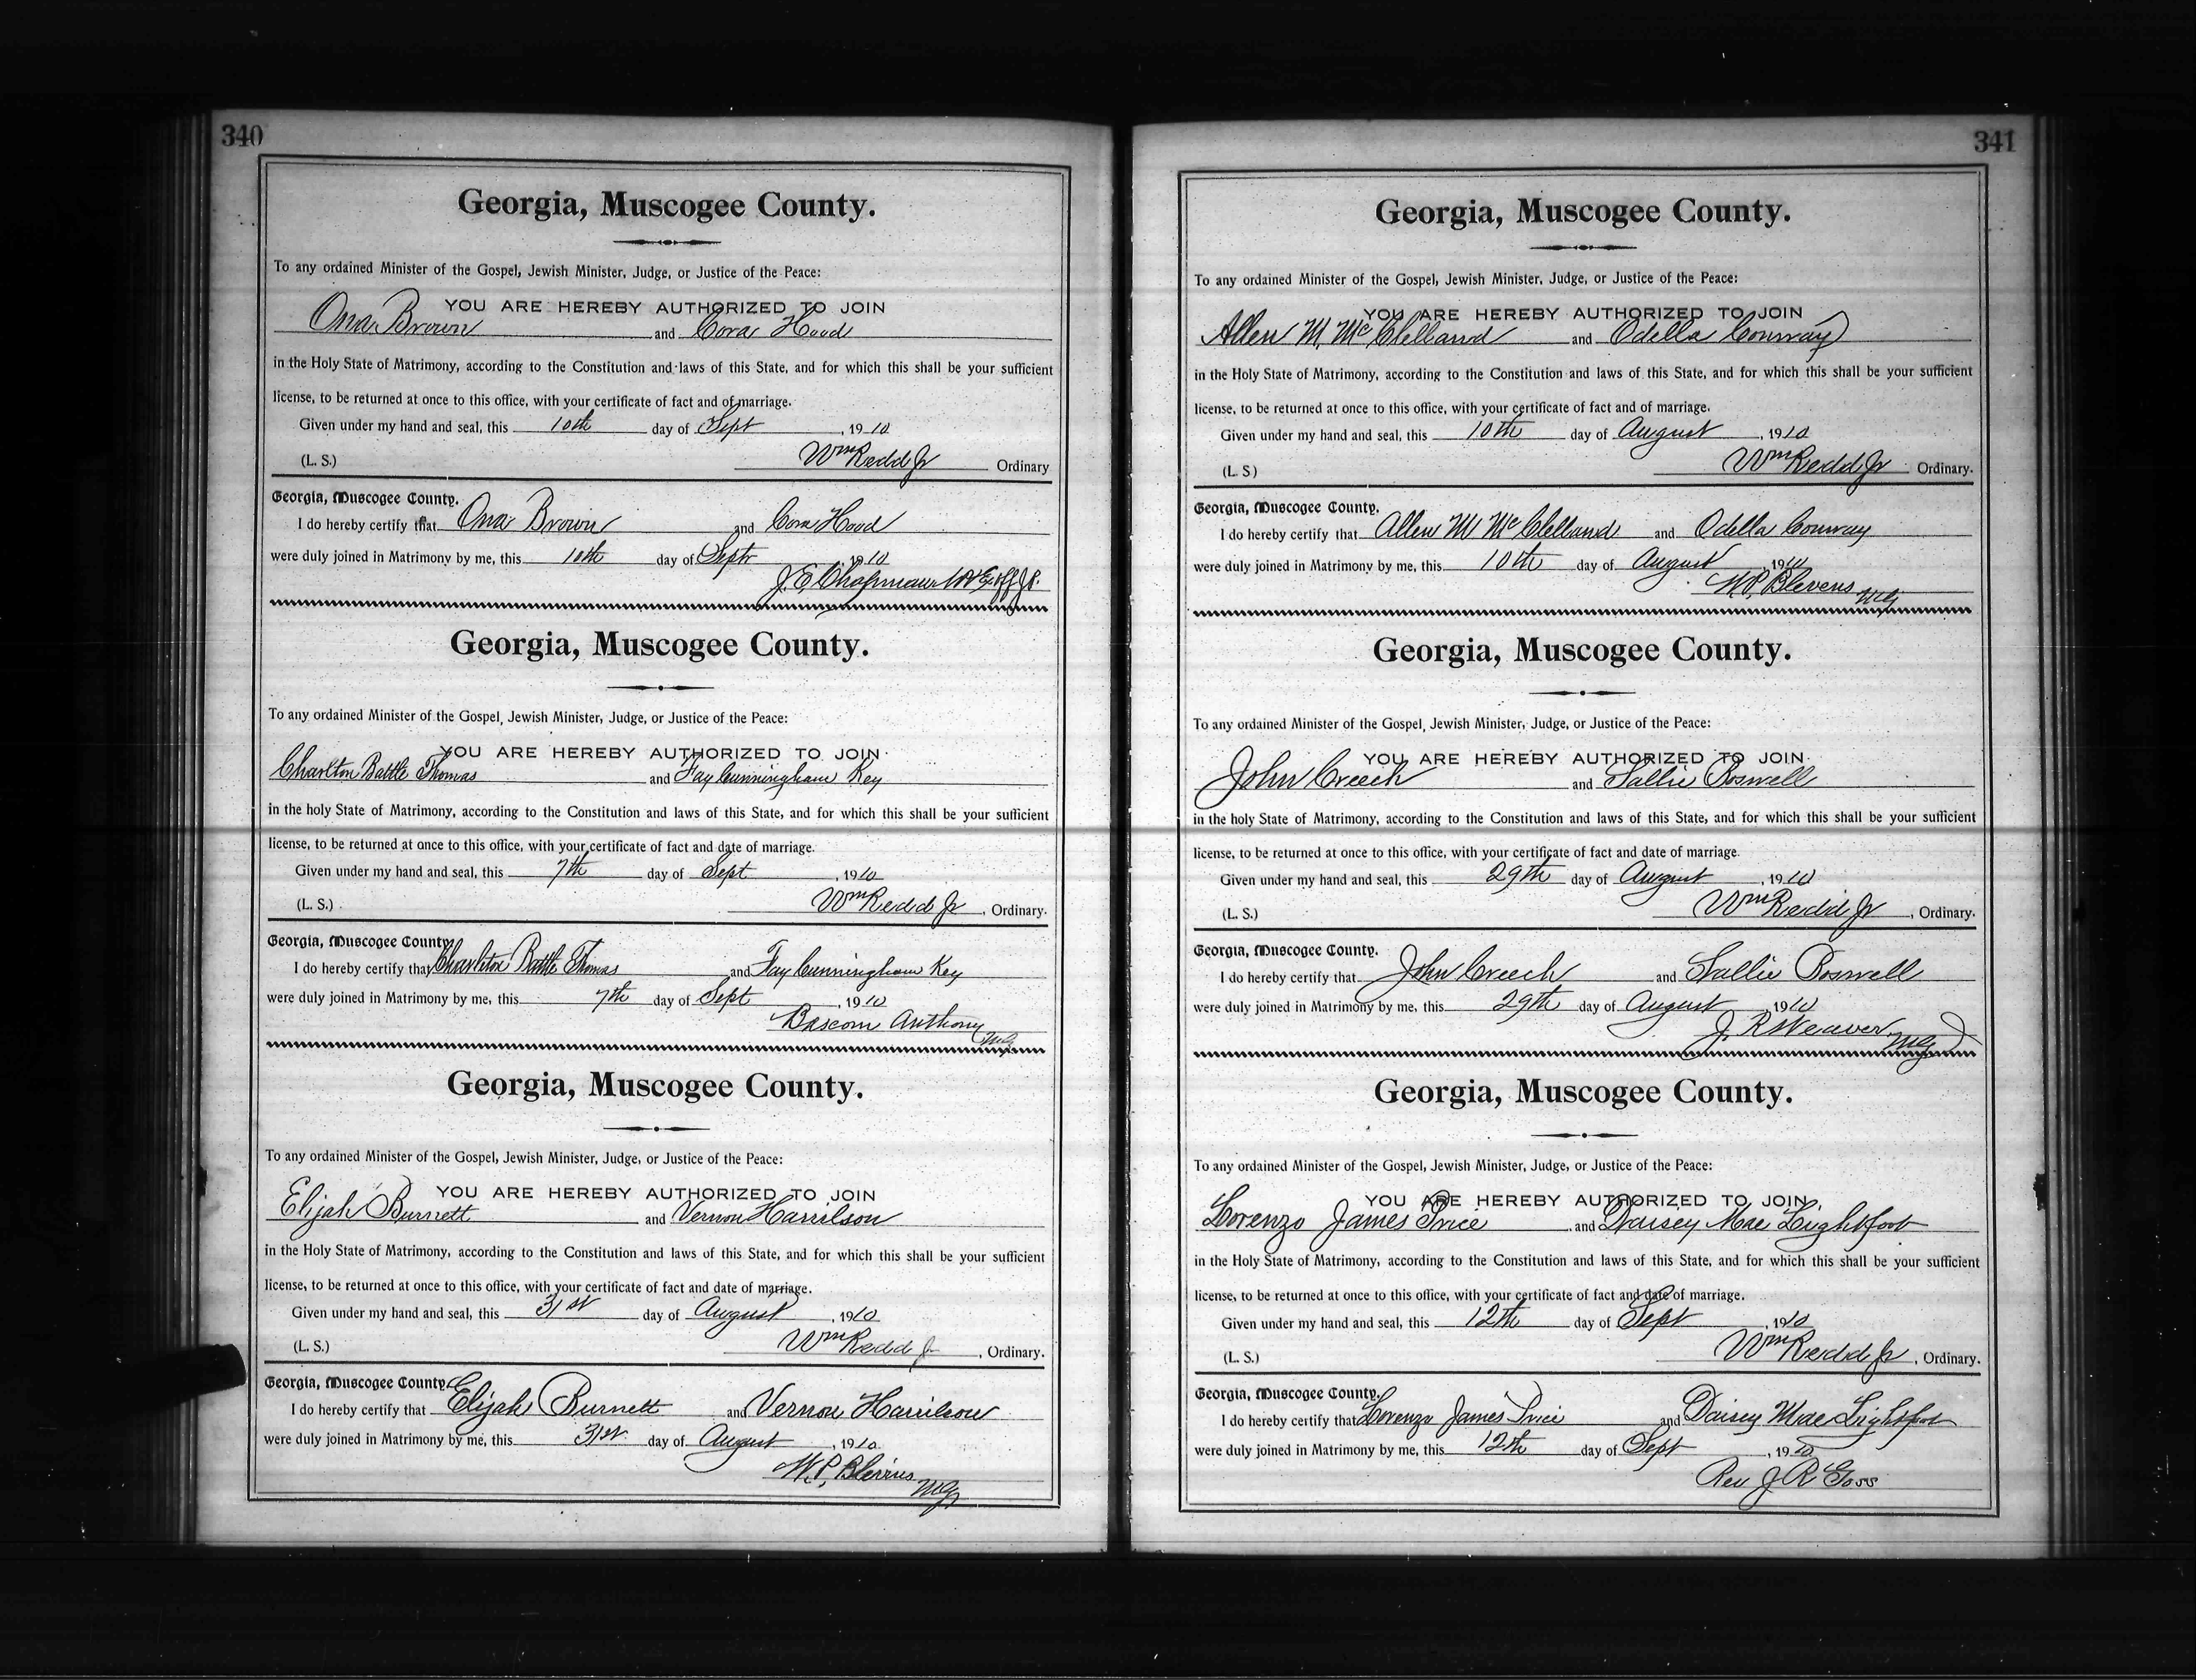 340
Georgia, Muscogee County.
To any ordained Minister of the Gospel, Jewish Minister, Judge, or Justice of the Peace:
YOU ARE HEREBY AUTHORIZED TO JOIN
Ona Brown and Cora Hood
in the Holy State of Matrimony, according to the Constitution and laws of this State, and for which this shall be your sufficient
license, to be returned at once to this office, with your certificate of fact and of marriage.
Given under my hand and seal, this 10th day of Sept, 1910
(L. S.) Wm Redd Jr Ordinary
Georgia, Muscogee County.
I do hereby certify that Ona Brown and Cora Hood
were duly joined in Matrimony by me, this 10th day of Sept 1910
J. E. Chapman
Georgia, Muscogee County.
To any ordained Minister of the Gospel, Jewish Minister, Judge, or Justice of the Peace:
YOU ARE HEREBY AUTHORIZED TO JOIN
Charlton Battle Thomas and Fay Cunningham Key
in the holy State of Matrimony, according to the Constitution and laws of this State, and for which this shall be your sufficient
license, to be returned at once to this office, with your certificate of fact and date of marriage.
Given under my hand and seal, this 7th day of Sept, 1910
(L. S.) Wm Redd Jr, Ordinary.
Georgia, Muscogee County
I do hereby certify that Charlton Battle Thomas and Fay Cunningham Key
were duly joined in Matrimony by me, this 7th day of Sept, 1910
Bascom Anthony
MG
Georgia, Muscogee County.
To any ordained Minister of the Gospel, Jewish Minister, Judge, or Justice of the Peace:
YOU ARE HEREBY AUTHORIZED TO JOIN
Elijah Burnett and Vernon Harrilson
in the Holy State of Matrimony, according to the Constitution and laws of this State, and for which this shall be your sufficient
license, to be returned at once to this office, with your certificate of fact and date of marriage.
Given under my hand and seal, this 31st day of August, 1910
(L. S.) Wm Redd Jr, Ordinary.
Georgia, Muscogee County
I do hereby certify that Elijah Burnett and Vernon Harrilson
were duly joined in Matrimony by me, this 31st day of August, 1910
W. P. Blevins
MG
341
Georgia, Muscogee County.
To any ordained Minister of the Gospel, Jewish Minister, Judge, or Justice of the Peace:
YOU ARE HEREBY AUTHORIZED TO JOIN
Allen M. McClelland and Odella Conway
in the Holy State of Matrimony, according to the Constitution and laws of this State, and for which this shall be your sufficient
license, to be returned at once to this office, with your certificate of fact and of marriage.
Given under my hand and seal, this 10th day of August, 1910
(L. S) Wm Redd Jr Ordinary.
Georgia, Muscogee County.
I do hereby certify that Allen M McClelland and Odella Conway
were duly joined in Matrimony by me, this 10th day of August, 1910
W. P. Blevens
MG
Georgia, Muscogee County.
To any ordained Minister of the Gospel, Jewish Minister, Judge, or Justice of the Peace:
YOU ARE HEREBY AUTHORIZED TO JOIN
John Creech and Sallie Boswell
in the holy State of Matrimony, according to the Constitution and laws of this State, and for which this shall be your sufficient
license, to be returned at once to this office, with your certificate of fact and date of marriage.
Given under my hand and seal, this 29th day of August, 1910
(L. S.) Wm Redd Jr, Ordinary.
Georgia, Muscogee County.
I do hereby certify that John Creech and Sallie Boswell
were duly joined in Matrimony by me, this 29th day of August, 1910
J. R. Weaver
MG
Georgia, Muscogee County.
To any ordained Minister of the Gospel, Jewish Minister, Judge, or Justice of the Peace:
YOU ARE HEREBY AUTHORIZED TO JOIN
Lorenzo James Price and Daisey Mae Lightfoot
in the Holy State of Matrimony, according to the Constitution and laws of this State, and for which this shall be your sufficient
license, to be returned at once to this office, with your certificate of fact and date of marriage.
Given under my hand and seal, this 12th day of Sept, 1910
(L. S.) Wm Redd Jr, Ordinary.
Georgia, Muscogee County,
I do hereby certify that Lorenzo James Price and Daisey Mae Lightfoot
were duly joined in Matrimony by me, this 12th day of Sept, 1910
Rev J. R Goss